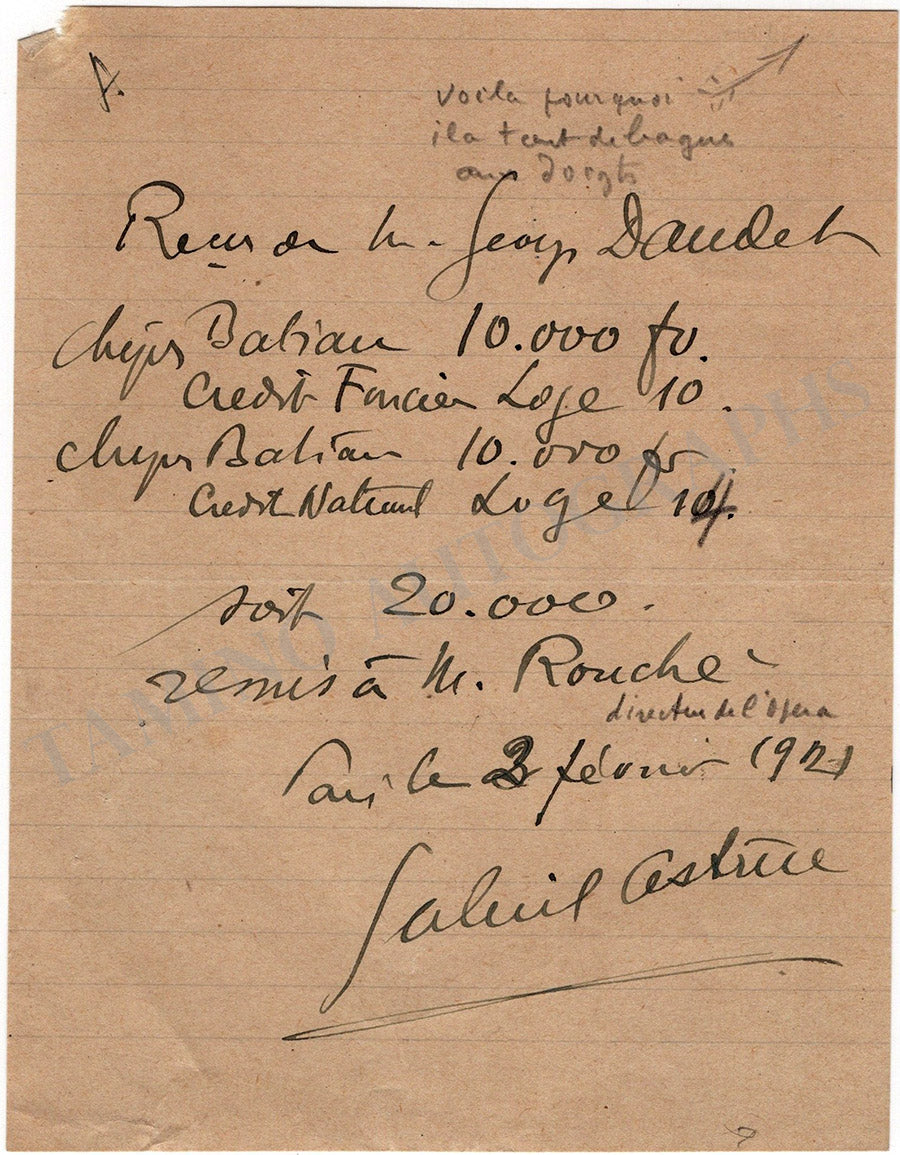 A.
voila pourquoi
il a tant de bagues
aux doigts
Reçu de M. Georges Daudet
chèques Batian 10.000 fr.
Credit Foncier Loge 10.
chèques Batian 10.000 fr
Credit National Loge 14.
soit 20.000.
remis à M. Rouché
directeur de l'opera
Paris le 3 février 1921
Gabriel Astruc
TAMINO AUTOGRAPHS